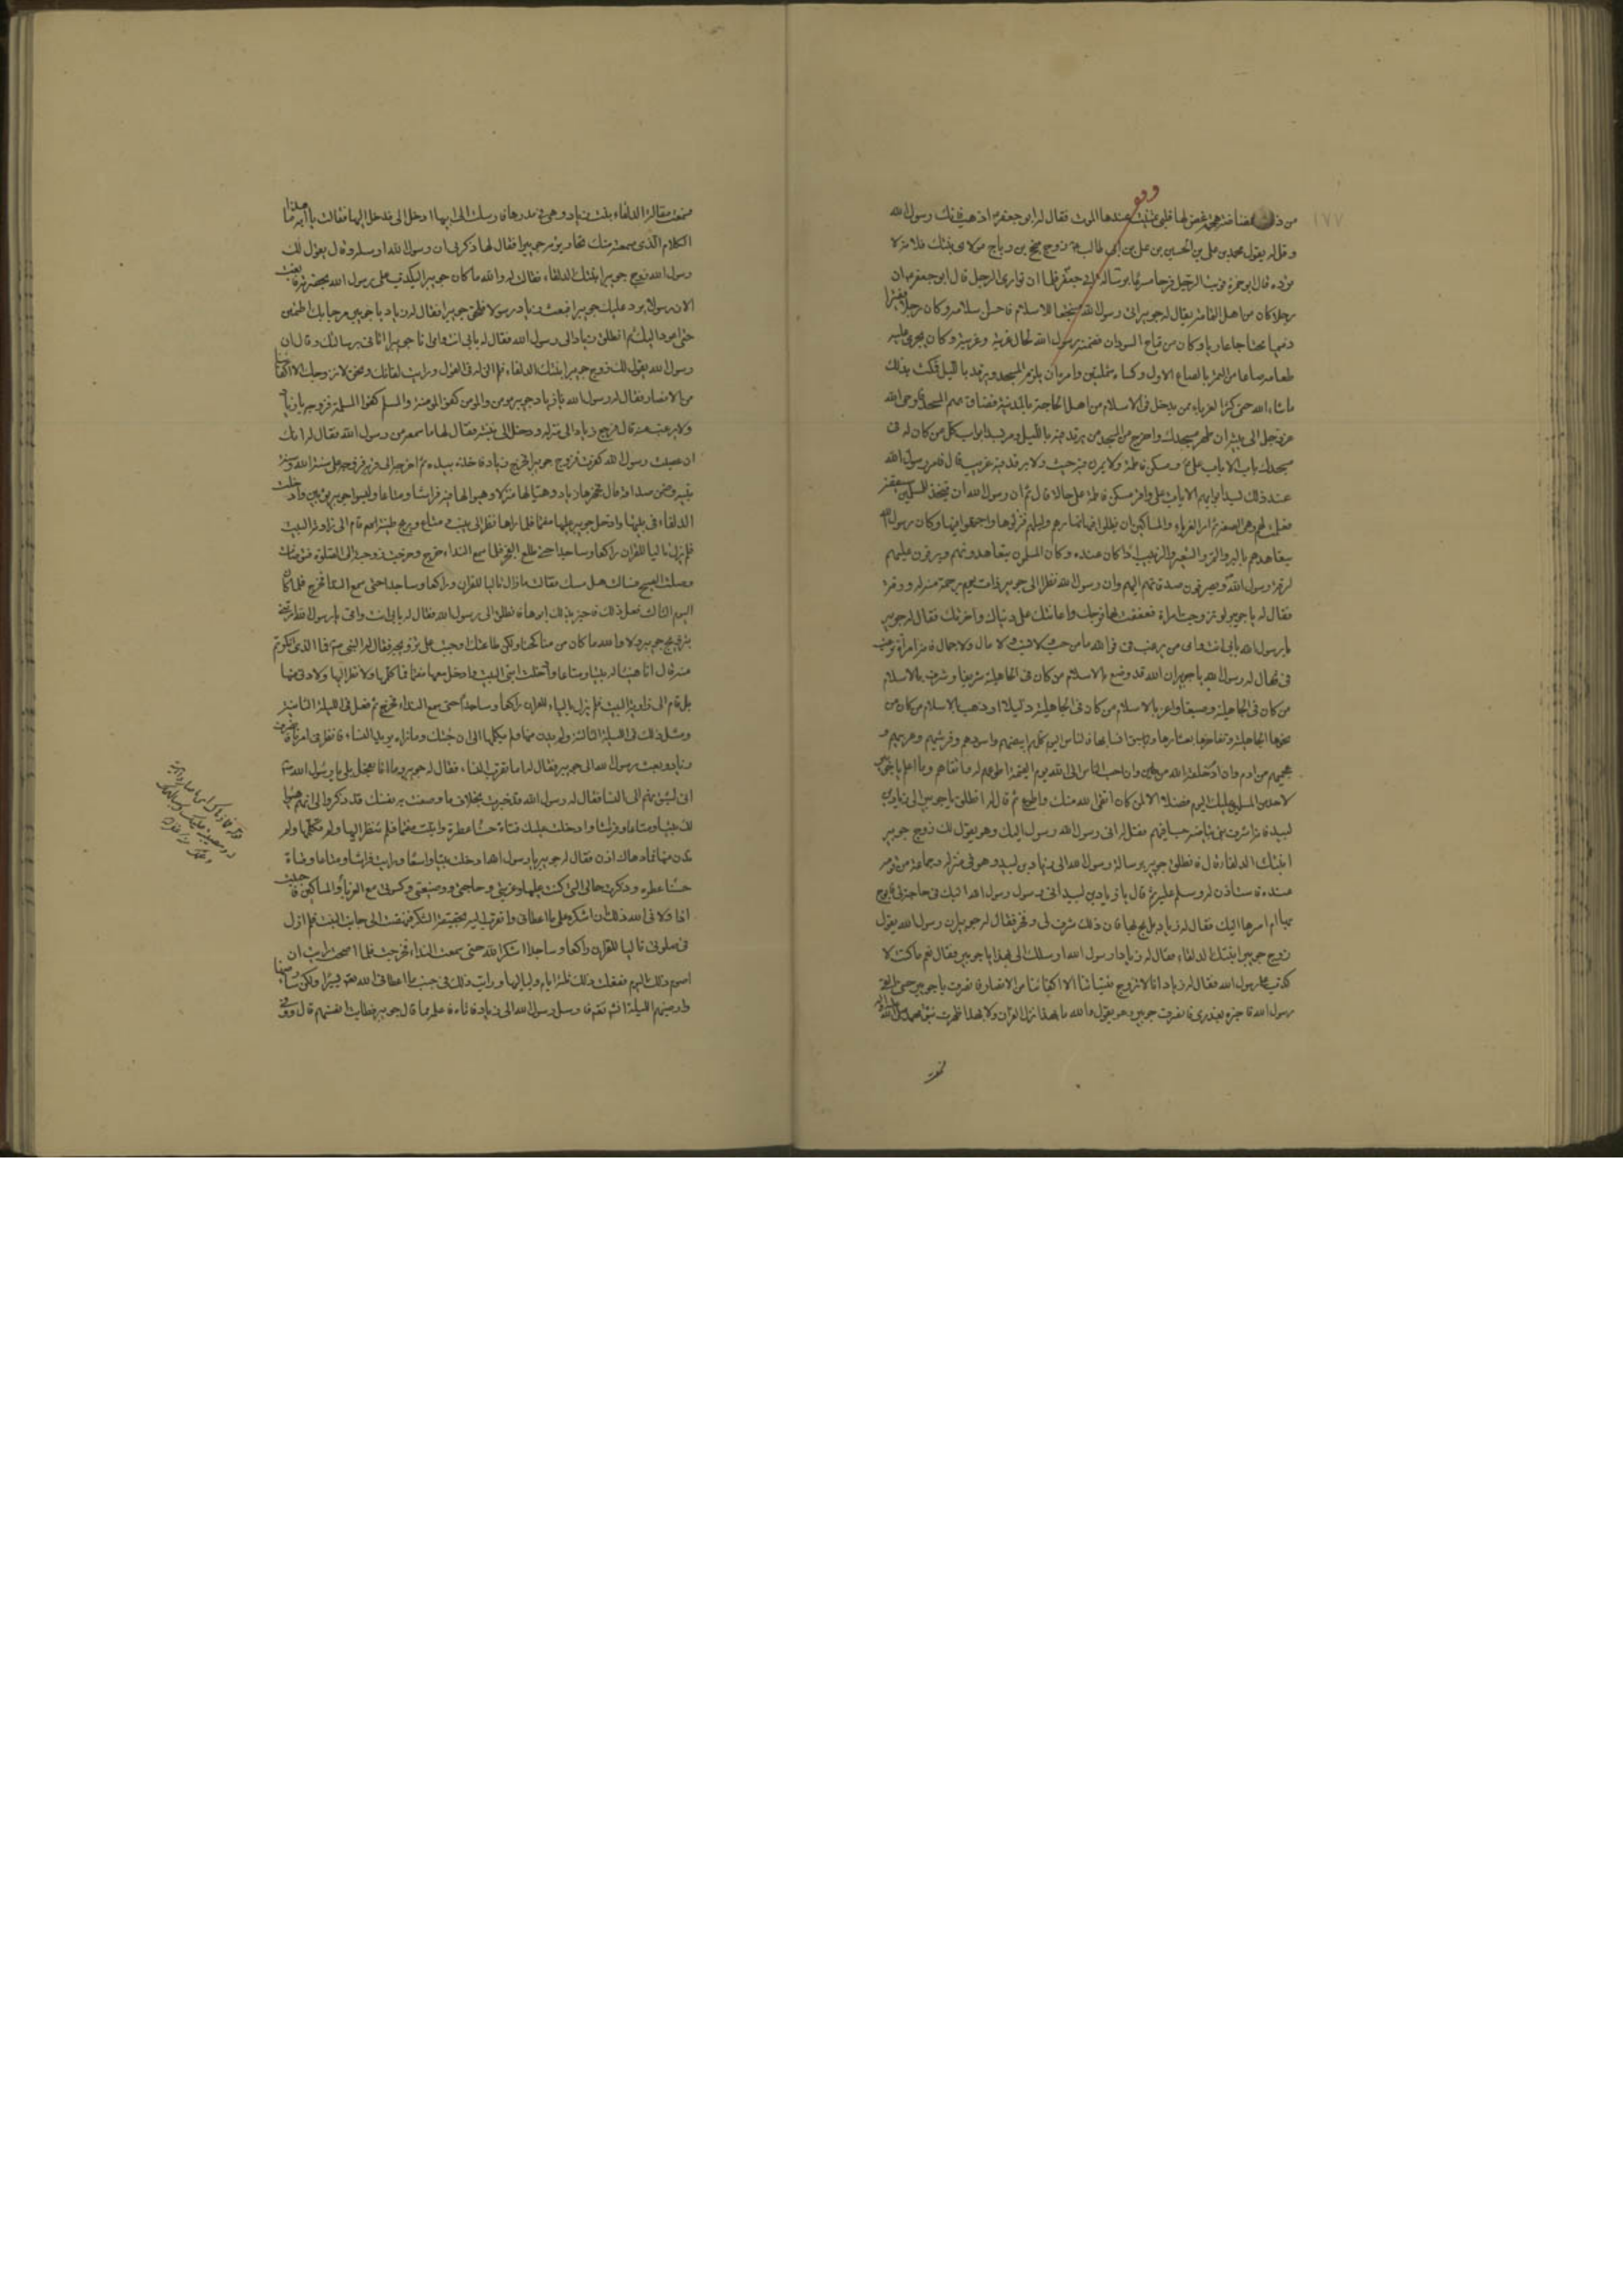 ١٧٧
وقف
من ذلك غضاضة هجم غض لها قلبي تمنيت عندها الموت فقال له ابو جعفر اذهب فانك رسولى اليه
وقل له يقول محمد بن على بن الحسين بن على بن ابى طالب زوج منجح بن رباح مولاى بنتك فلانة ولا
ترده قال ابو حمزة فوثب الرجل فرحا مسرعا برسالة ابى جعفر فلما ان توارى الرجل قال ابو جعفر ان
رجلا كان من اهل اليمامة يقال له جويبر اتى رسول الله منتجعا للاسلام فاسلم وحسن اسلامه وكان رجلا قصيرا
دميما محتاجا عاريا وكان من قباح السودان فضمه رسول الله لحال غربته وعريه وكان يجرى عليه
طعامه صاعا من التمر بالصاع الاول وكساه شملتين وامره ان يلزم المسجد ويرقد فيه بالليل فمكث بذلك
ماشاء الله حتى كثر الغرباء ممن يدخل فى الاسلام من اهل الحاجة بالمدينة وضاق بهم المسجد فاوحى الله
عز وجل الى نبيه ان طهر مسجدك واخرج من المسجد من يرقد فيه بالليل ومر بسد ابواب كل من كان له فى
مسجدك باب الا باب على ومسكن فاطمة ولا يمرن فيه جنب ولا يرقد فيه غريب قال فامر رسول الله
عند ذلك بسد ابوابهم الا باب على واقر مسكن فاطمة على حاله قال ثم ان رسول الله امر ان يتخذ للمسلمين سقيفة
فعملت لهم وهى الصفة ثم امر الغرباء والمساكين ان يظلوا فيها نهارهم وليلهم فنزلوها واجتمعوا فيها وكان رسول الله
يتعاهدهم بالبر والتمر والشعير والزبيب اذا كان عنده وكان المسلمون يتعاهدونهم ويرقون عليهم
لرقة رسول الله ويصرفون صدقاتهم اليهم وان رسول الله نظر الى جويبر ذات يوم برحمة منه له ورقة
فقال له يا جويبر لو تزوجت امراة فعففت بها فرجك واعانتك على دنياك واخرتك فقال له جويبر
يا رسول الله بابى انت وامى من يرغب فى فوالله ما من حسب ولا نسب ولا مال ولا جمال فاية امراة ترغب
فى فقال له رسول الله يا جويبر ان الله قد وضع بالاسلام من كان فى الجاهلية شريفا وشرف بالاسلام
من كان فى الجاهلية وضيعا واعز بالاسلام من كان فى الجاهلية ذليلا واذهب بالاسلام ما كان من
نخوة الجاهلية وتفاخرها بعشايرها وباسق انسابها فالناس اليوم كلهم ابيضهم واسودهم وقرشيهم وعربيهم و
عجميهم من ادم وان ادم خلقه الله من طين وان احب الناس الى الله يوم القيمة اطوعهم له واتقاهم وما اعلم يا جويبر
لاحد من المسلمين عليك اليوم فضلا الا لمن كان اتقى لله منك واطوع ثم قال له انطلق يا جويبر الى زياد بن
لبيد فانه من اشرف بنى بياضة حسبا فيهم فقل له انى رسول رسول الله اليك وهو يقول لك زوج جويبر
ابنتك الدلفاء قال فانطلق جويبر برسالة رسول الله الى زياد بن لبيد وهو فى منزله وجماعة من قومه
عنده فاستأذن له وسلم عليه ثم قال يا زياد بن لبيد انى رسول رسول الله اليك فى حاجة لى فابوح
بها ام اسرها اليك فقال له زياد بل بح بها فان ذلك شرف لى وفخر فقال له جويبر ان رسول الله يقول
زوج جويبرا بنتك الدلفاء فقال له زياد ارسول الله ارسلك الى بهذا يا جويبر فقال نعم ما كنت لا
كذب على رسول الله فقال له زياد انا لا نزوج فتياتنا الا اكفائنا من الانصار فانصرف يا جويبر حتى القى
رسول الله فاخبره بعذرى فانصرف جويبر وهو يقول والله ما بهذا نزل القران ولا بهذا ظهرت نبوة محمد صلى الله عليه واله
فسمعت مقالته الدلفاء بنت زياد وهى فى خدرها فارسلت الى ابيها ادخل الى فدخل اليها فقالت يا ابه ما هذا
الكلام الذى سمعته منك تحاور به جويبرا فقال لها ذكر لى ان رسول الله ارسله وقال يقول لك
رسول الله زوج جويبرا ابنتك الدلفاء فقالت له والله ما كان جويبر ليكذب على رسول الله بحضرته فابعث
الان رسولا يرد عليك جويبرا فبعث زياد رسولا فلحق جويبرا فقال له زياد يا جويبر مرحبا بك اطمئن
حتى اعود اليك ثم انطلق زياد الى رسول الله فقال له بابى انت وامى ان جويبرا اتانى برسالتك وقال ان
رسول الله يقول لك زوج جويبرا ابنتك الدلفاء فلم الن له فى القول ورايت لقائك ونحن لا نزوج الا اكفائنا
من الانصار فقال له رسول الله يا زياد جويبر مومن والمومن كفو المومنة والمسلم كفو المسلمة فزوجه يا زياد
ولا ترغب عنه قال فرجع زياد الى منزله ودخل الى ابنته فقال لها ما سمعه من رسول الله فقالت له انك
ان عصيت رسول الله كفرت فزوج جويبرا فخرج زياد فاخذ بيد جويبر ثم اخرجه الى قومه فزوجه على سنة الله وسنة
نبيه وضمن صداقه قال فجهزها زياد وهيئوا لها منزلا وهيئوا لها فيه فراشا ومتاعا وكسوا جويبرا ثوبين وادخلت
الدلفاء فى بيتها وادخل جويبر عليها معتما فلما راها نظر الى بيت ومتاع وريح طيبة قام الى زاوية البيت
فلم يزل تاليا للقران راكعا وساجدا حتى طلع الفجر فلما سمع النداء خرج وخرجت زوجته الى الصلوة فتوضأت
وصلت الصبح فسئلت هل مسك فقالت ما زال تاليا للقران وراكعا وساجدا حتى سمع النداء فخرج فلما كان
اليوم الثالث فعل ذلك فاخبر بذلك ابوها فانطلق الى رسول الله فقال له بابى انت وامى يا رسول الله امرتنى
بتزويج جويبر ولا والله ما كان من مناكحنا ولكن طاعتك اوجبت على تزويجه فقال له النبى فما الذى انكرتم
منه قال انا هيئنا له بيتا ومتاعا وادخلت ابنتى البيت وادخل معها معتما فما كلمها ولا نظر اليها ولا دنى منها
بل قام الى زاوية البيت فلم يزل تاليا للقران راكعا وساجدا حتى سمع النداء فخرج ثم فعل فى الليلة الثانية
ومثل ذلك فى الليلة الثالثة ولم يدن منها ولم يكلمها الى ان جئتك وما نراه يريد النساء فانظر فى امرنا فانصرف
زياد وبعث رسول الله الى جويبر فقال له اما تقرب النساء فقال له جويبر وما انا بفحل بلى يا رسول الله
انى لشبق نهم الى النساء فقال له رسول الله قد خبرت بخلاف ما وصفت به نفسك قد ذكروا لى انهم هيئوا
لك بيتا ومتاعا وفراشا وادخلت عليك فتاة حسناء عطرة واتيت معتما فلم تنظر اليها ولم تكلمها ولم
تدن منها فما دهاك اذن فقال له جويبر يا رسول الله دخلت بيتا واسعا ورايت فراشا ومتاعا وفتاة
حسناء عطرة وذكرت حالى التى كنت عليها وغربتى وحاجتى وضيعتى وكينونتى مع الغرباء والمساكين فاحببت
اذ اولانى الله ذلك ان اشكره على ما اعطانى واتقرب اليه بحقيقة الشكر فنهضت الى جانب البيت فلم ازل
فى صلوتى تاليا للقران راكعا وساجدا اشكر الله حتى سمعت النداء فخرجت فلما اصبحت رايت ان
اصوم ذلك اليوم ففعلت ذلك ثلثة ايام ولياليها ورايت ذلك فى جنب ما اعطانى الله يسيرا ولكنى سارضيها
وارضيهم الليلة انشاء الله فارسل رسول الله الى زياد فاتاه فاعلمه بما قال جويبر فطابت انفسهم قال ووفى